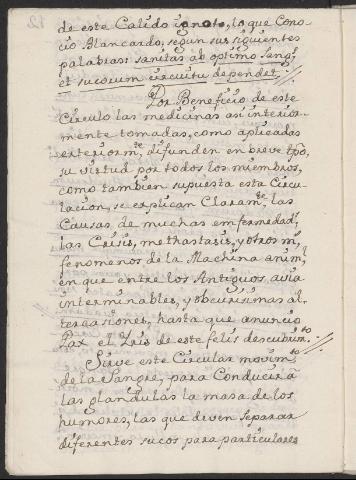 de este Calido ignoto, lo que Cono-
cio Blancardo, segun sus siguientes
palabras: sanitas ab optimo Sang.
et sucorum circuitu dependet.
Por Beneficio de este
Circulo las medicinas asi interior-
mente tomadas, como aplicadas
exteriorm.te, difunden en breve tpo,
su virtud por todos los miembros,
como tambien supuesta esta Circu-
lacion, se explican Claram.te las
Causas de muchas enfermedad.s
las Crisis, methastasis, y otros m.s
fenomenos de la Machina anim.l
en que entre los Antiguos, avia
interminables, y obcurisimas al-
tercasiones, hasta que anuncio
Pax el Iris de este felis descubrim.to
Sirve este Circular movim.to
de la Sangre, para Conducir á
las glandulas la masa de los
humores, las que deven separar
diferentes sucos para particulares